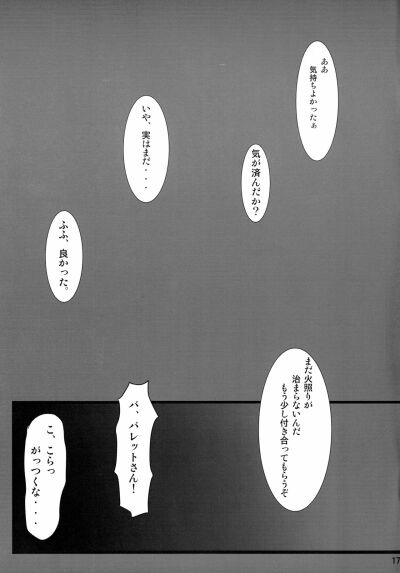 ああ
気持ちよかったぁ
気が済んだか?
いや、実はまだ・・・
ふふ、良かった。
まだ火照りが
治まらないんだ
もう少し付き合ってもらうぞ
バ、バレットさん!
こ、こらっ
がっつくな・・・
17